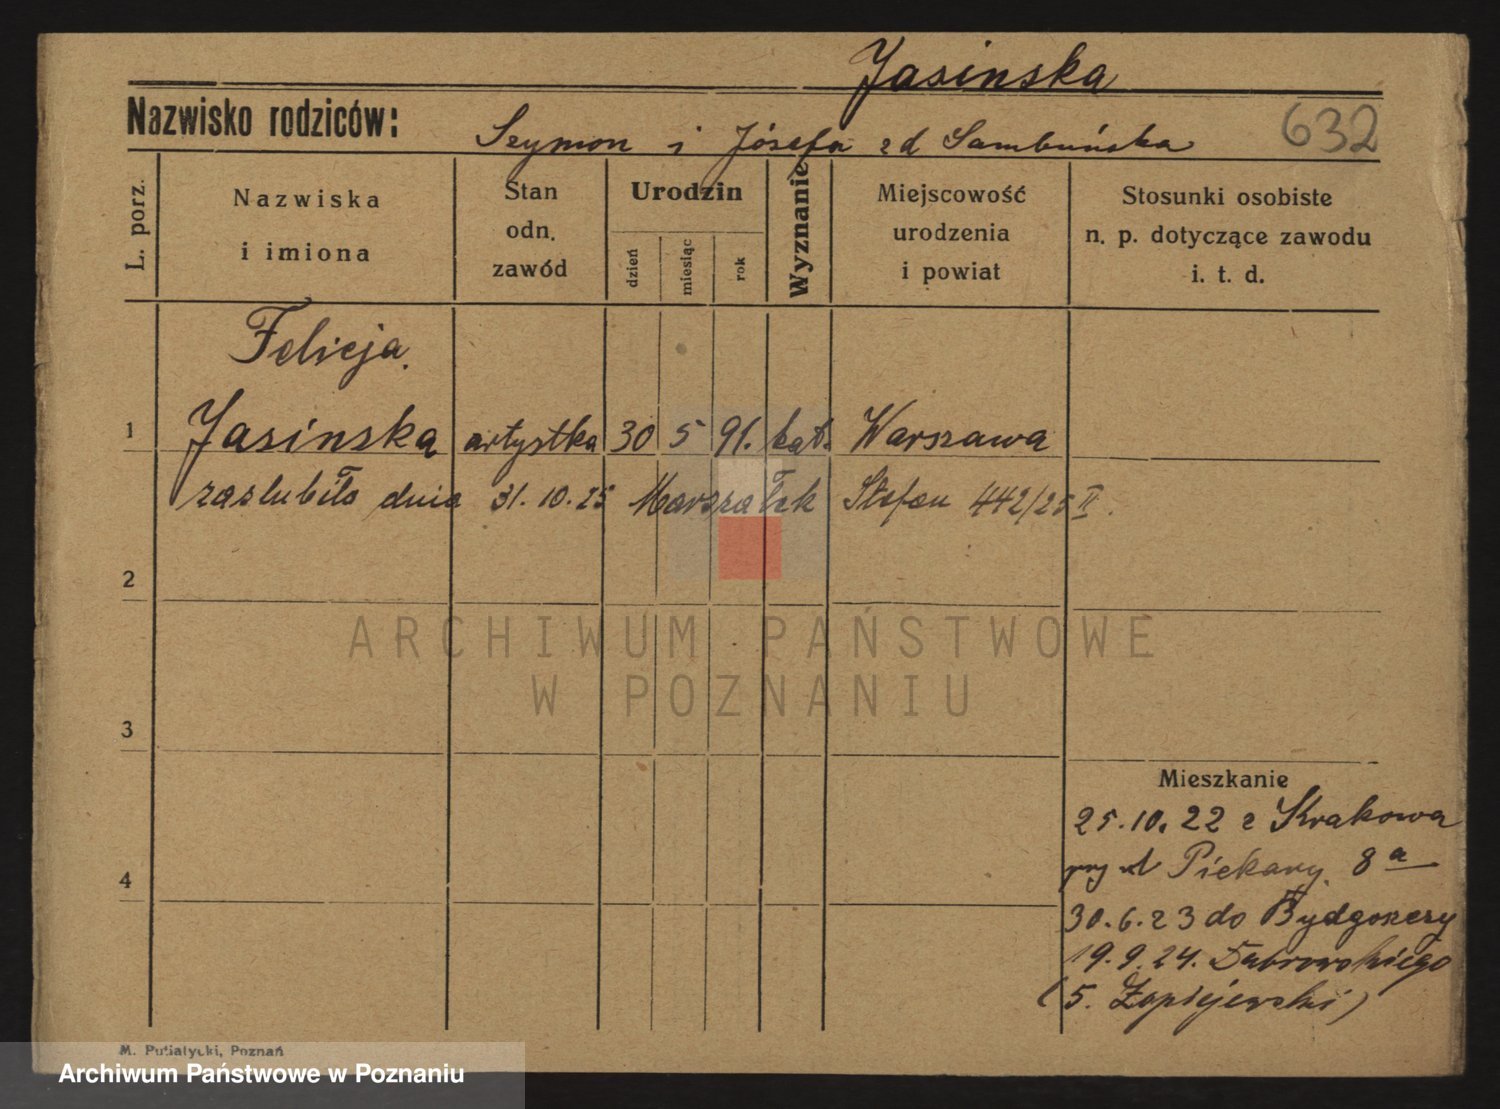 Jasinska
Nazwisko rodziców:
632
Szymon i Józefa zd Sambuńska
L. porz.
Nazwiska
i imiona
Stan
odn.
zawód
Urodzin
dzień
miesiąc
rok
Wyznanie
Miejscowość
urodzenia
i powiat
Stosunki osobiste
n. p. dotyczące zawodu
i. t. d.
Felicja
1 Jasinska artystka 30 5 91. kat. Warszawa
zaslubiła dnia 31.10.25 Marszałek Stefan 442/25 II.
2
ARCHIWUM PAŃSTWOWE
W POZNANIU
3
Mieszkanie
25.10.22 z Krakowa
4
Piekary 8a
30.6.23 do Bydgoszczy
19.9.24. Dabrowskiego
(5.
M. Putiatycki, Poznań
Archiwum Państwowe w Poznaniu